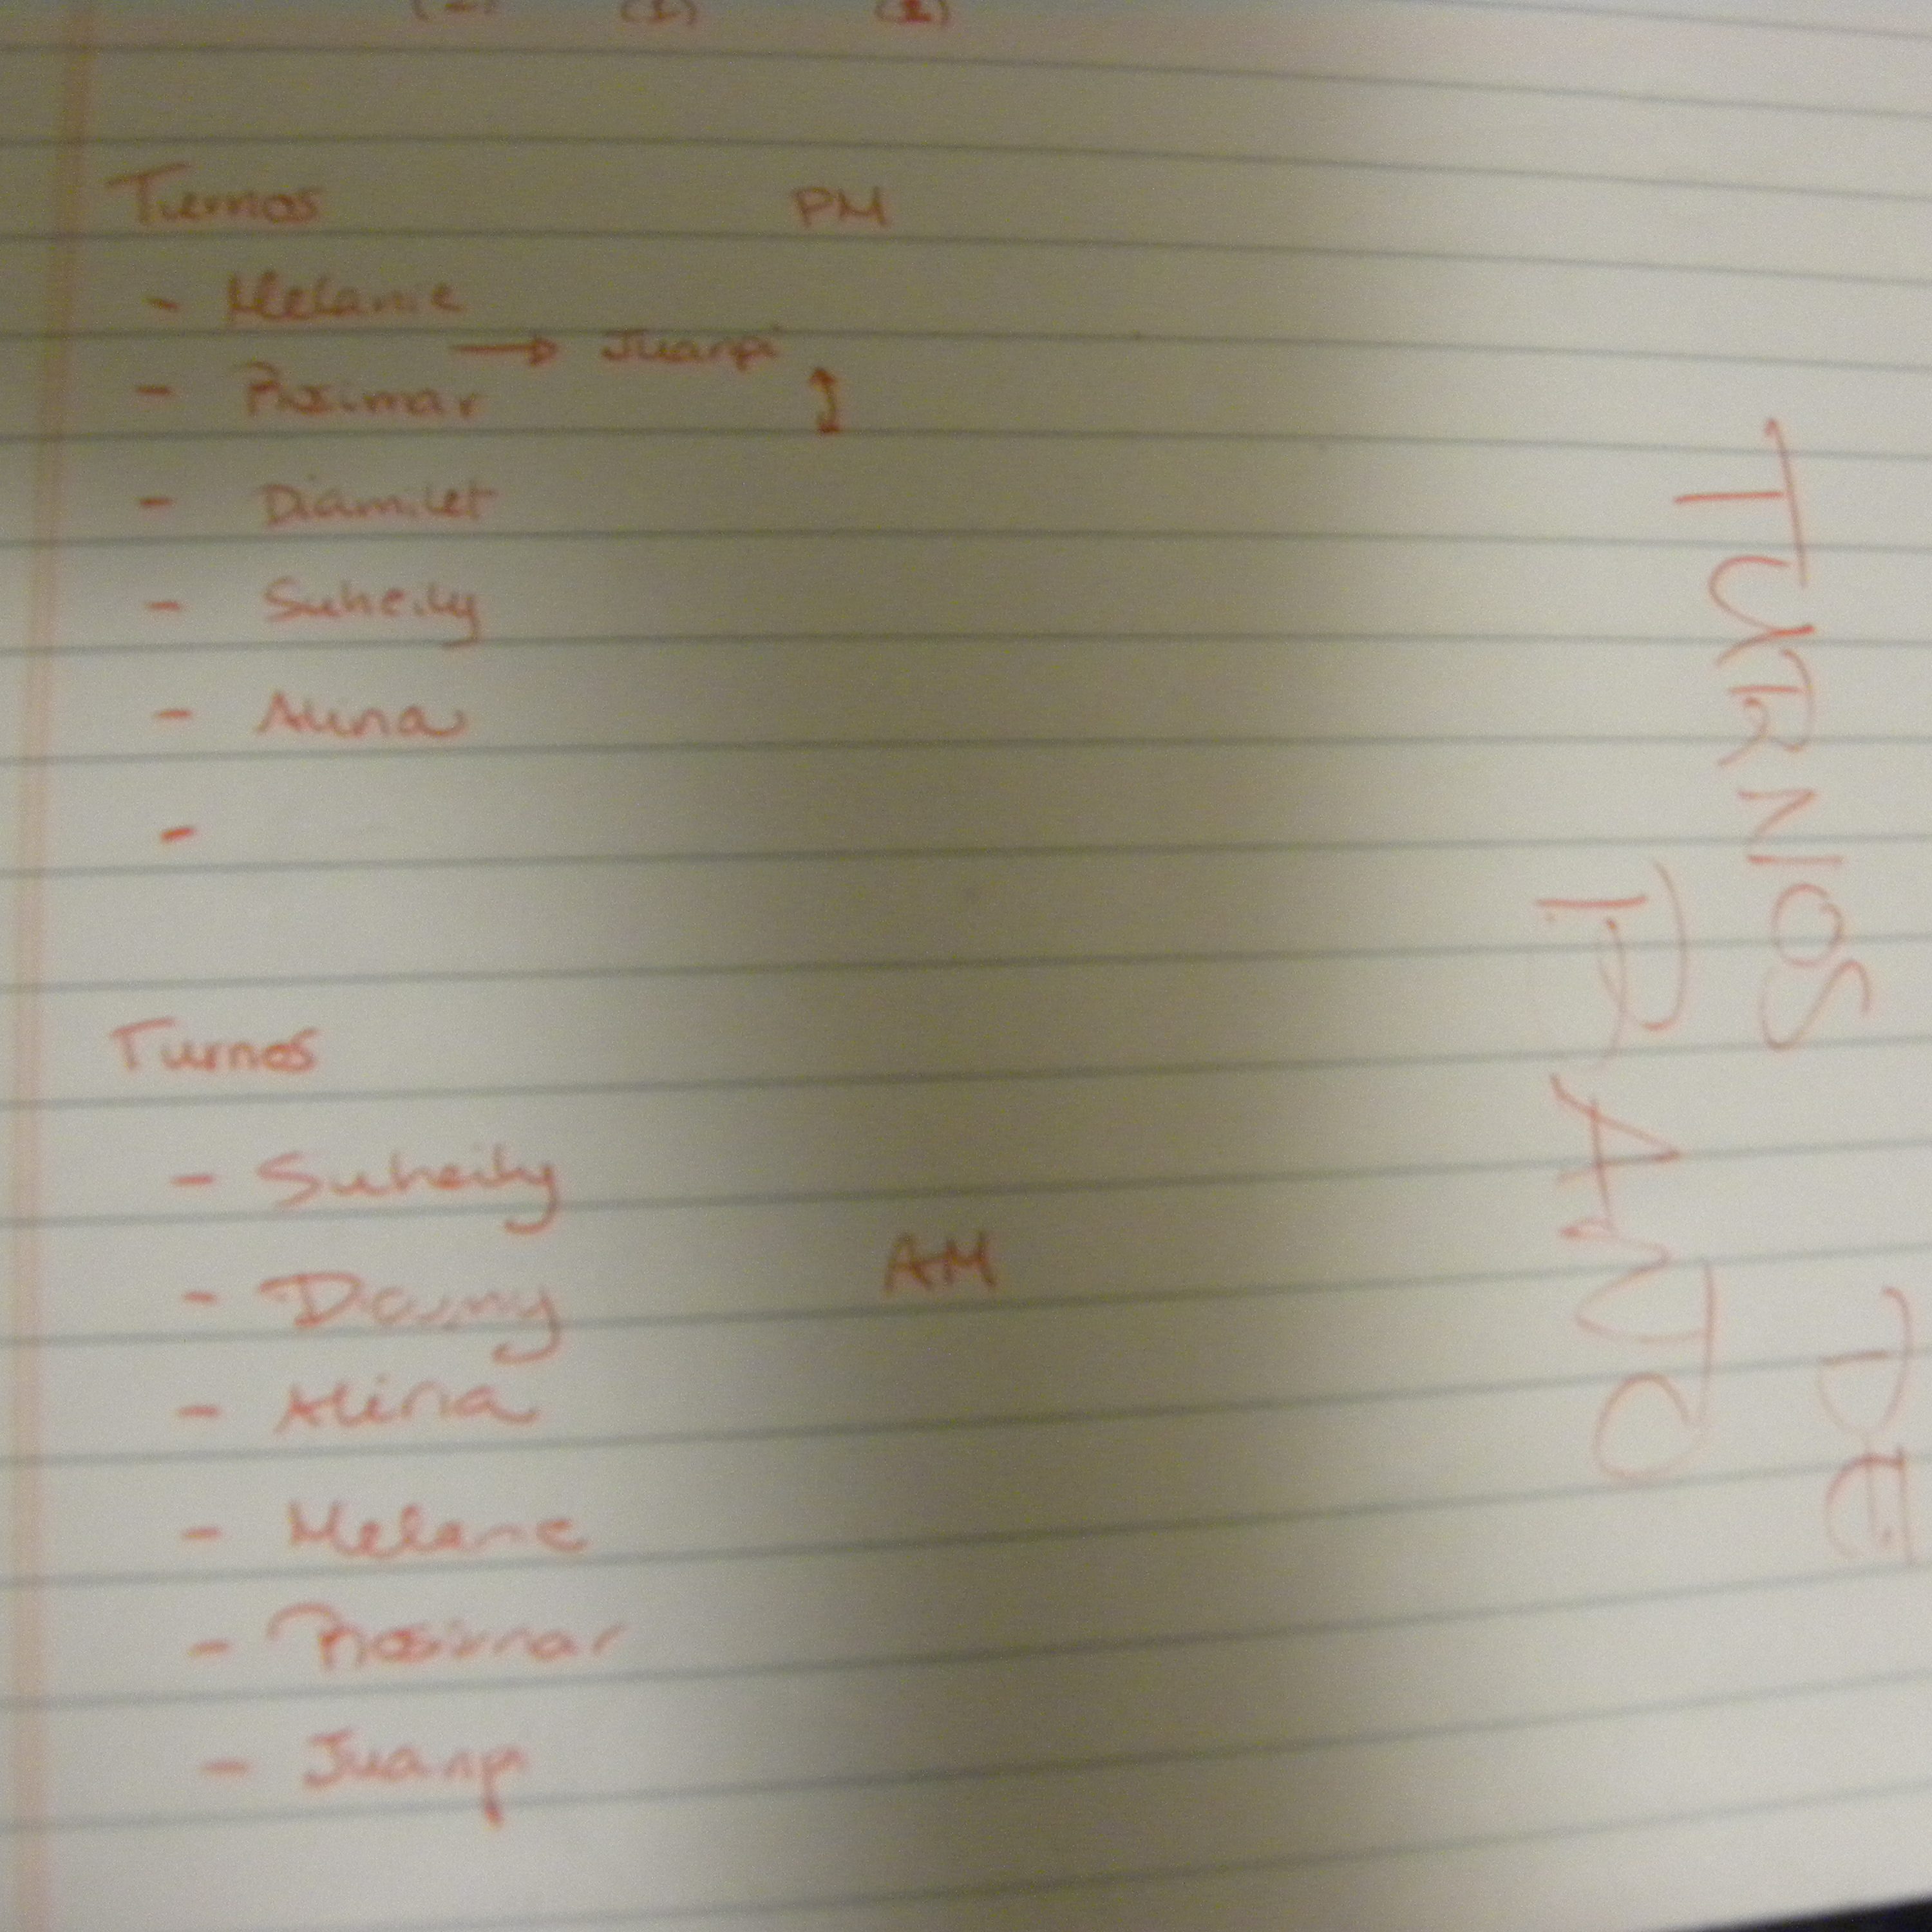 (1) (1)
Turnos PM
- Melanie
→ Juanpi
- Rosimar ↕
- Diamilet
- Suheily
- Alina
-
Turnos
- Suheily
- AM
- Alina
- Melanie
- Rosimar
- Juanpi
TURNOS DE